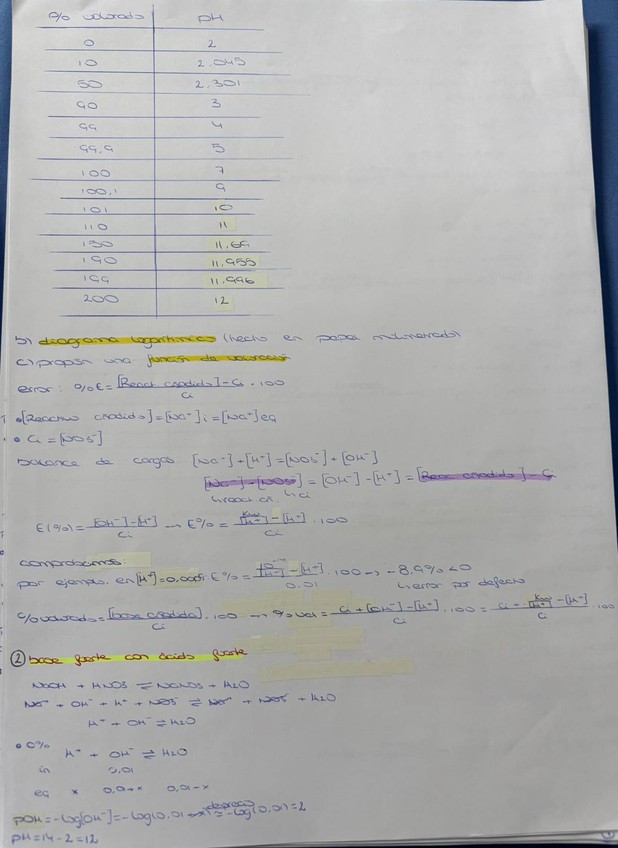 % valorado pH
0 2
10 2.045
50 2.301
90 3
99 4
99,9 5
100 7
100,1 9
101 10
110 11
150 11.69
190 11.955
199 11.996
200 12
b) diagrama logaritmico (hecho en papel milimetrado)
c) propon una funcion de valoracion
error: %E = [React añadido] - Ci / Ci · 100
• [Reactivo añadido] = [Na⁺]i = [Na⁺]eq
• Ci = [NO3⁻]
balance de cargas [Na⁺] + [H⁺] = [NO3⁻] + [OH⁻]
[Na⁺] - [NO3⁻] = [OH⁻] - [H⁺] = [Reac añadido] - Ci
↳react añ. ↳Ci
E(%) = [OH⁻] - [H⁺] / Ci → E% = Kw/[H⁺] - [H⁺] / Ci · 100
comprobamos:
por ejemplo, en [H⁺] = E% = / [H⁺] - [H⁺] / 0.01 · 100 → -8,9% < 0
↳error por defecto
% valorado = [base añadida] / Ci · 100 → % val = Ci + [OH⁻] - [H⁺] / Ci · 100 = Ci - Kw/[H⁺] - [H⁺] / Ci · 100
② base fuerte con ácido fuerte
NaOH + HNO3 ⇌ NaNO3 + H2O
Na⁺ + OH⁻ + H⁺ + NO3⁻ ⇌ Na⁺ + NO3⁻ + H2O
H⁺ + OH⁻ ⇌ H2O
• 0%
H⁺ + OH⁻ ⇌ H2O
in 0,01
eq x 0,01-x
pOH = -log[OH⁻] = -log(0,01 ≈ -log(0,01) = 2
pH = 14 - 2 = 12